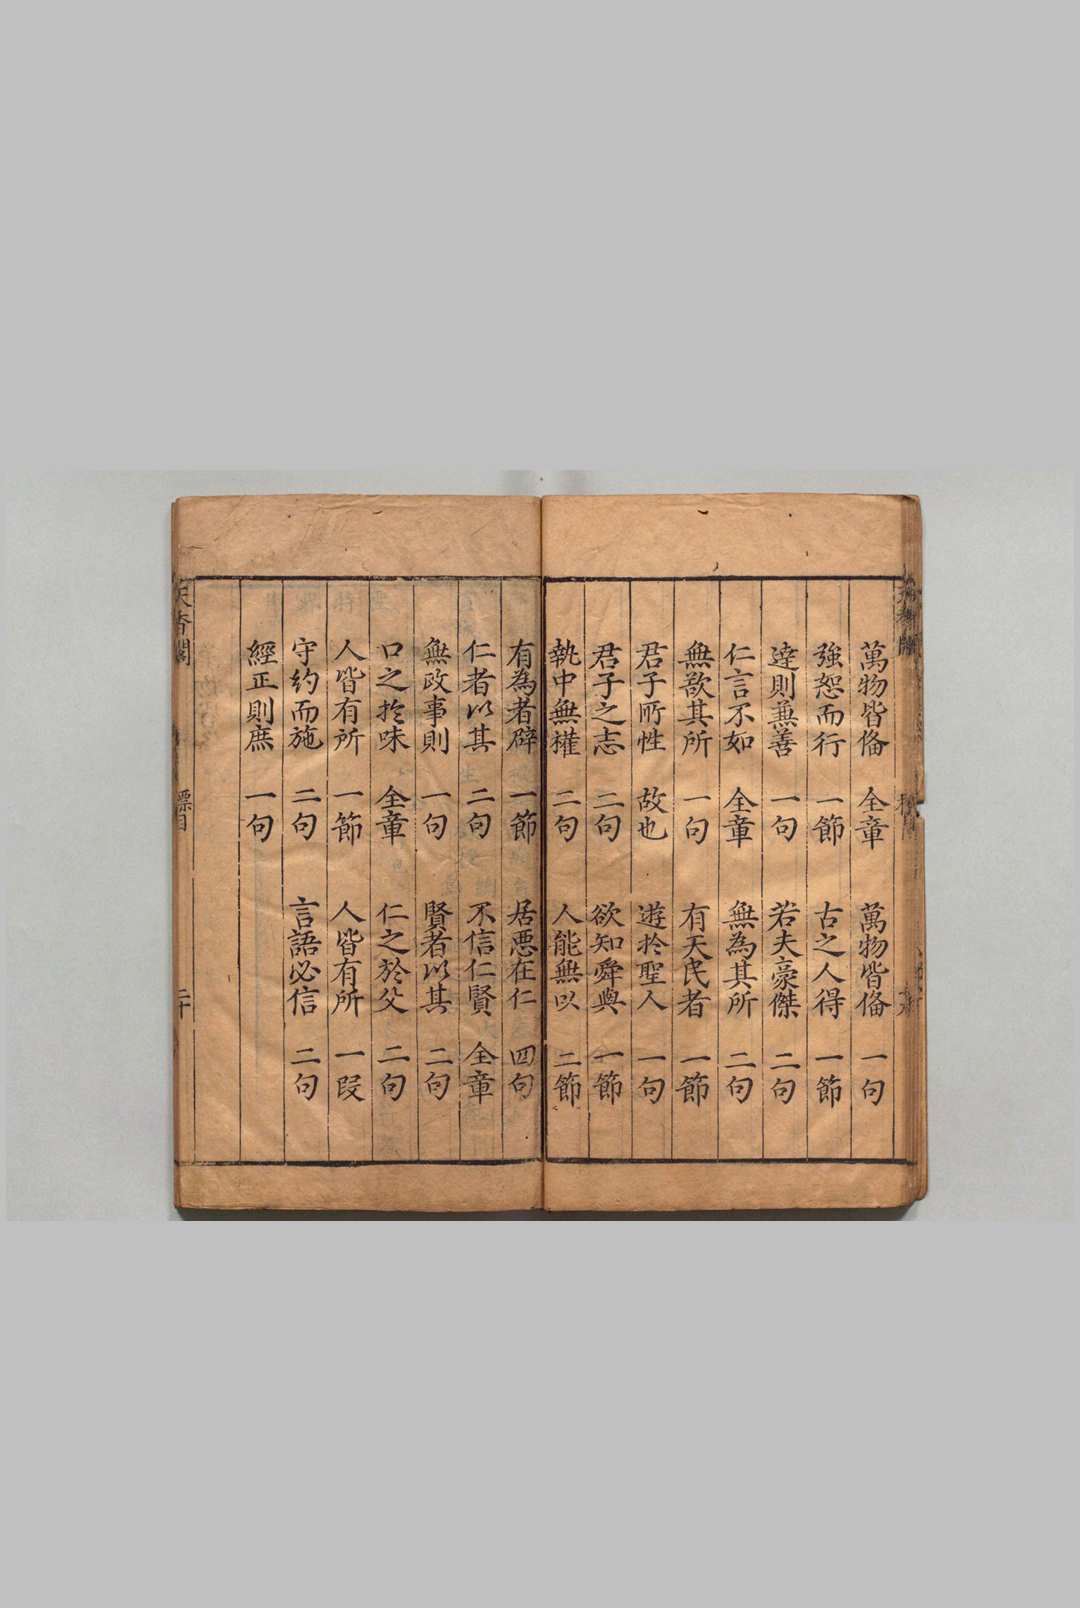 萬物皆俻 全章 萬物皆俻 一句
強恕而行 一節 古之人得 一節
達則兼善 一句 若夫豪傑 二句
仁言不如 全章 無為其所 二句
無欲其所 一句 有天民者 一節
君子所性 故也 遊於聖人 一句
君子之志 二句 欲知舜與 一節
執中無權 二句 人能無以 二節
有為者辟 一節 居惡在仁 四句
仁者以其 二句 不信仁賢 全章
無政事則 一句 賢者以其 二句
口之於味 全章 仁之於父 二句
人皆有所 一節 人皆有所 一段
守約而施 二句 言語必信 二句
經正則庶 一句
天香閣 標目 二十